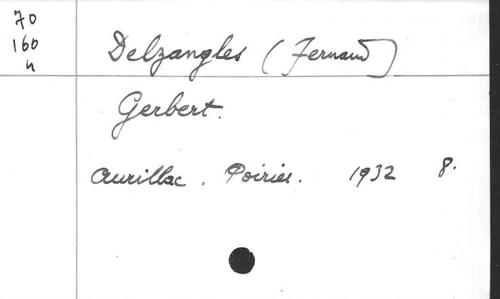 70
160
h
Delzangles (Fernand)
Gerbert.
Aurillac. Poirier. 1932 8.